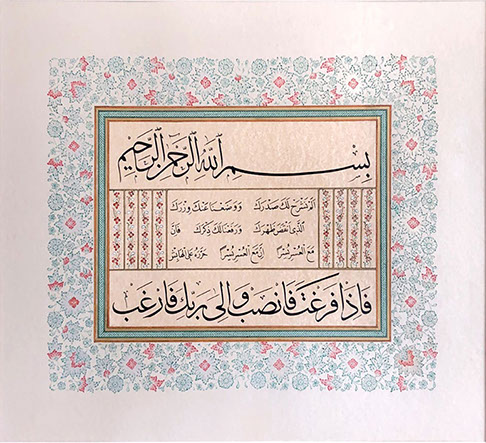 بسم الله الرحمن الرحيم
الم نشرح لك صدرك ووضعنا عنك وزرك
الذي انقض ظهرك ورفعنا لك ذكرك فان
مع العسر يسرا ان مع العسر يسرا حرره علي
فاذا فرغت فانصب والى ربك فارغب